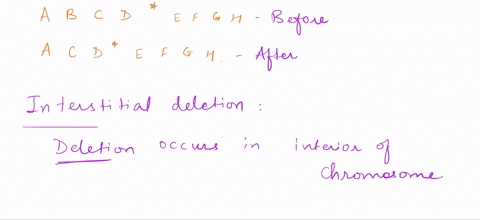 A B C D * E F G H - Before
A C D * E F G H. - After
Interstitial deletion :
Deletion occurs in interior of
chromosome